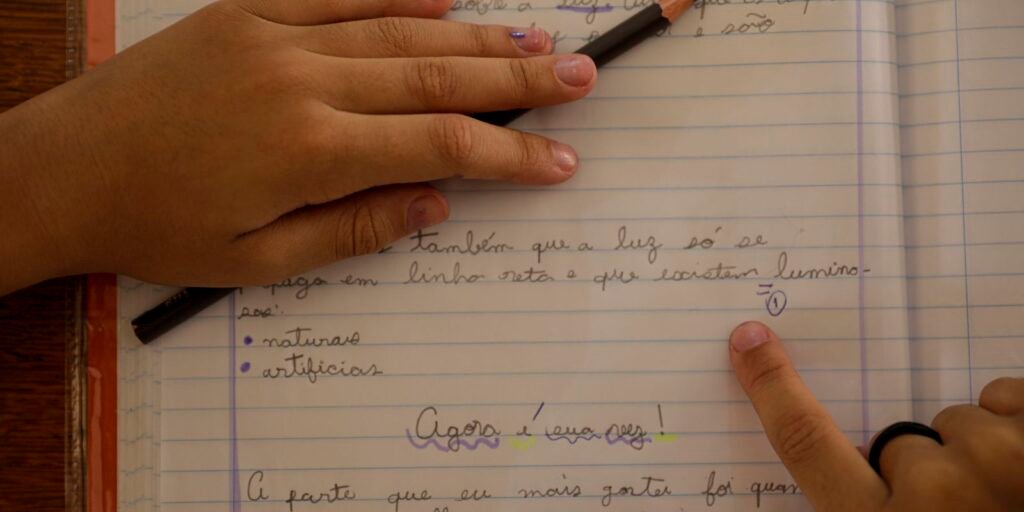 sobre a luz
e são
também que a luz só se
em linha reta e que existem lumino-
sos:
• naturais
• artificiais
①
Agora é sua vez!
A parte que eu mais gostei foi quan